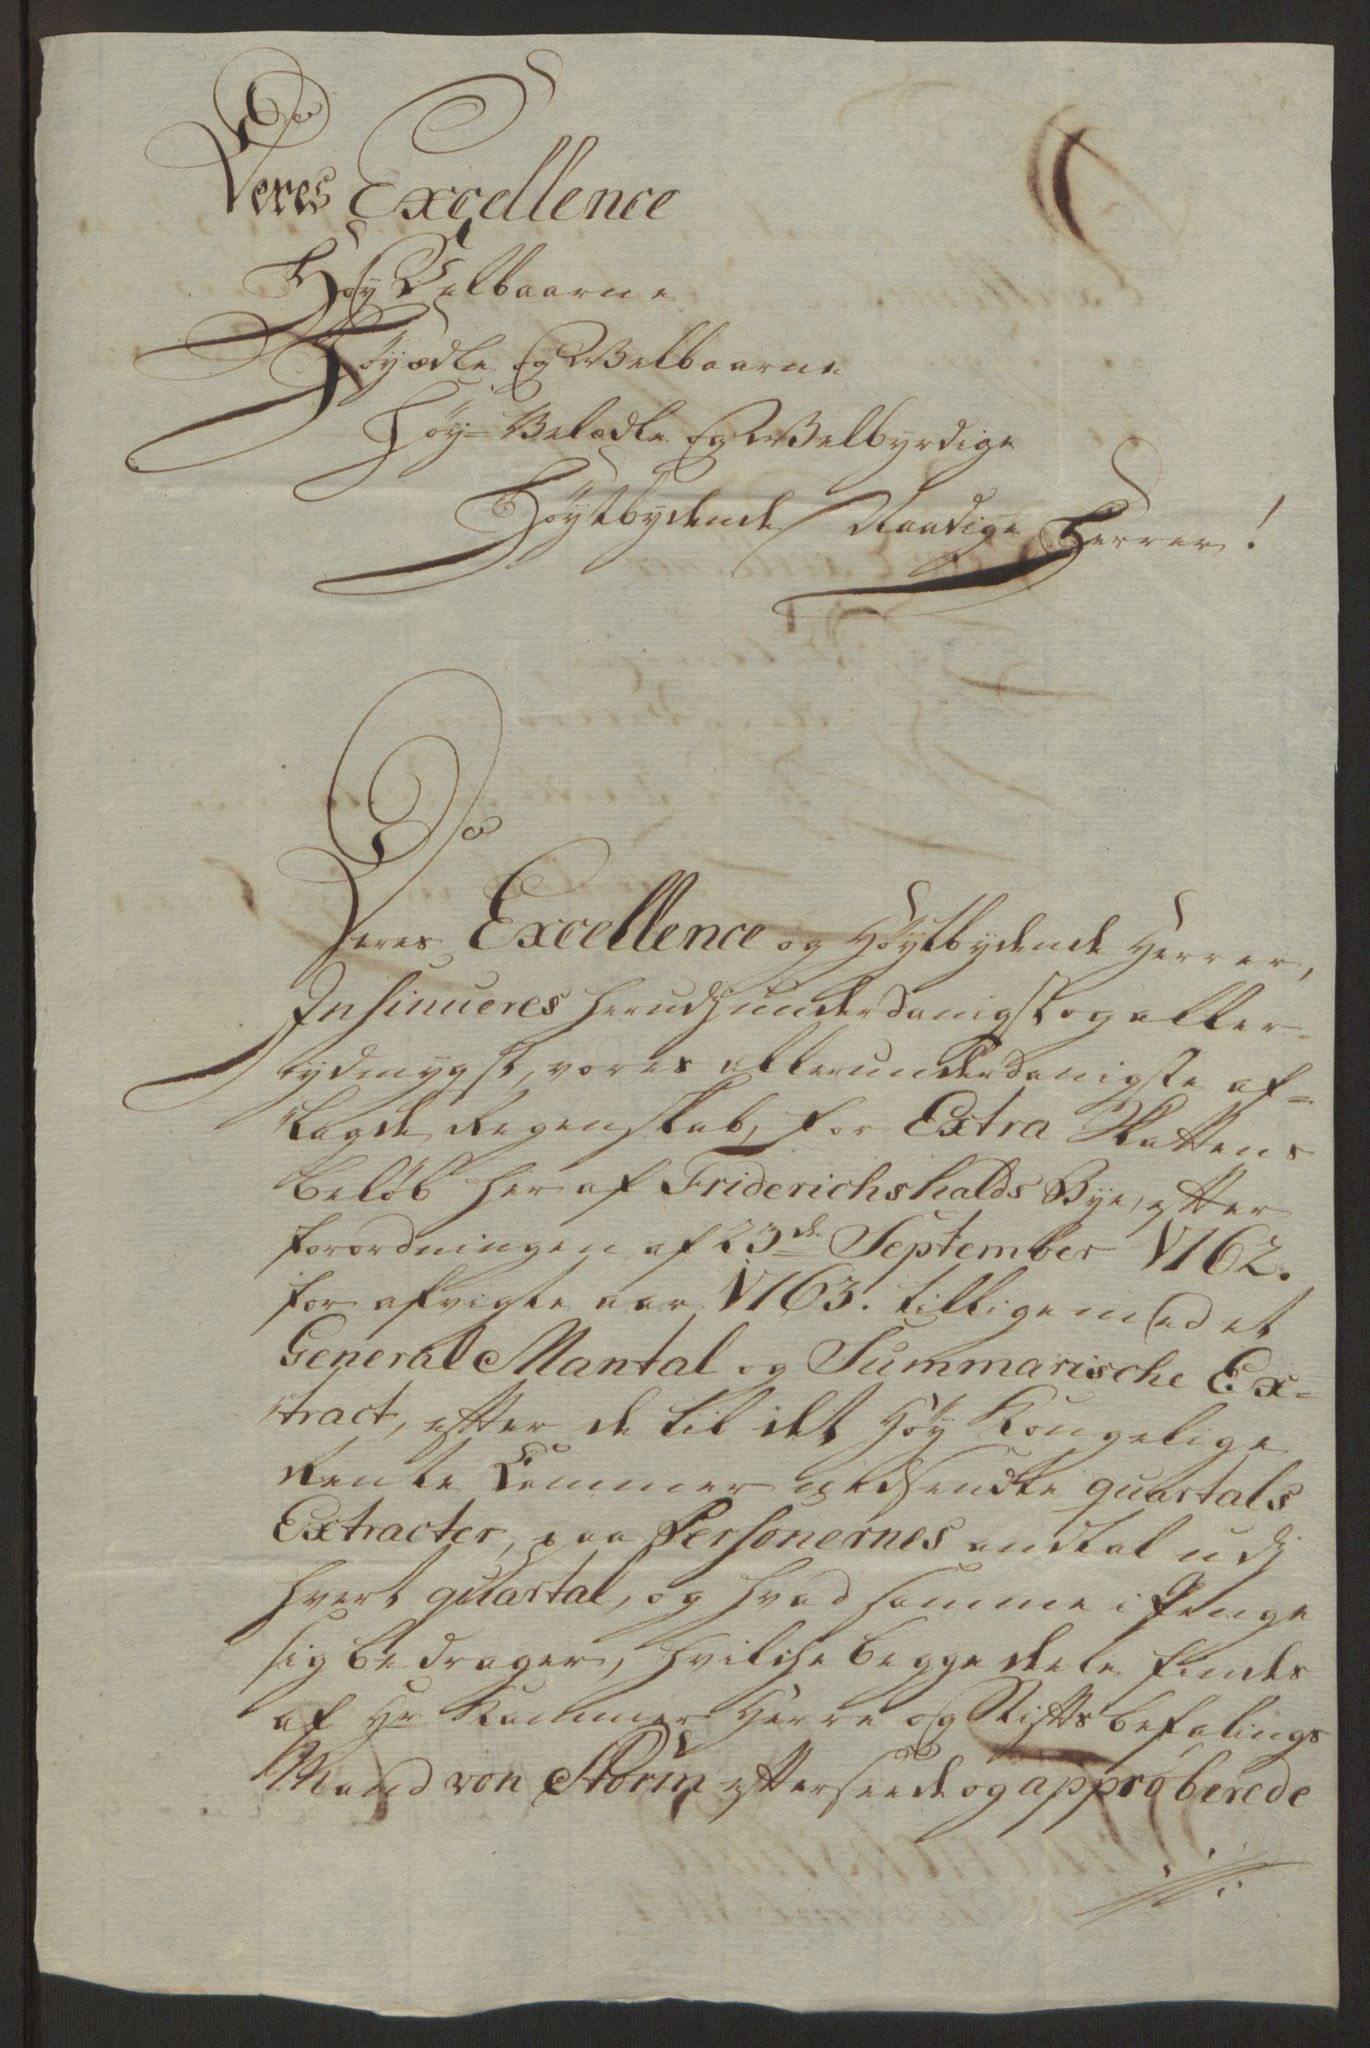 Deres Excellence
Høy Velbaarne
Høyædle og Welbaarne
Høy- Velædle og Welbyrdige
Høytbydende Naadige Herrer!
Deres Excellence og Høytbydende Herrer,
Insinueres herudj underdanigst og aller-
ydmygst, vores allerunderdanigste af-
lagde Regenskab, for Extra Skattens
beløb her af Friderichshalds Bye, efter
forordningen af 23de September 1762.
for afvigte aar 1763. tillige med et
General Mantal og Summarische Ex-
tract, efter de til det Høy Kongelige
Rente Cammer nedsendte quartals
Extracter, paa Personernes andtal udj
hvert quartal, og hvad samme i Penge
sig bedrager, hvilche begge dele findes
af Hr Kammer Herre og Stiftsbefalings
Mand von Storm efterseede og approberede